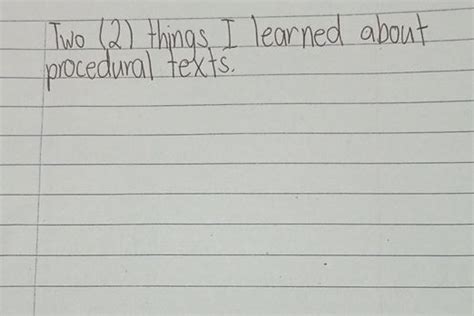 Two (2) things I learned about
procedural texts.